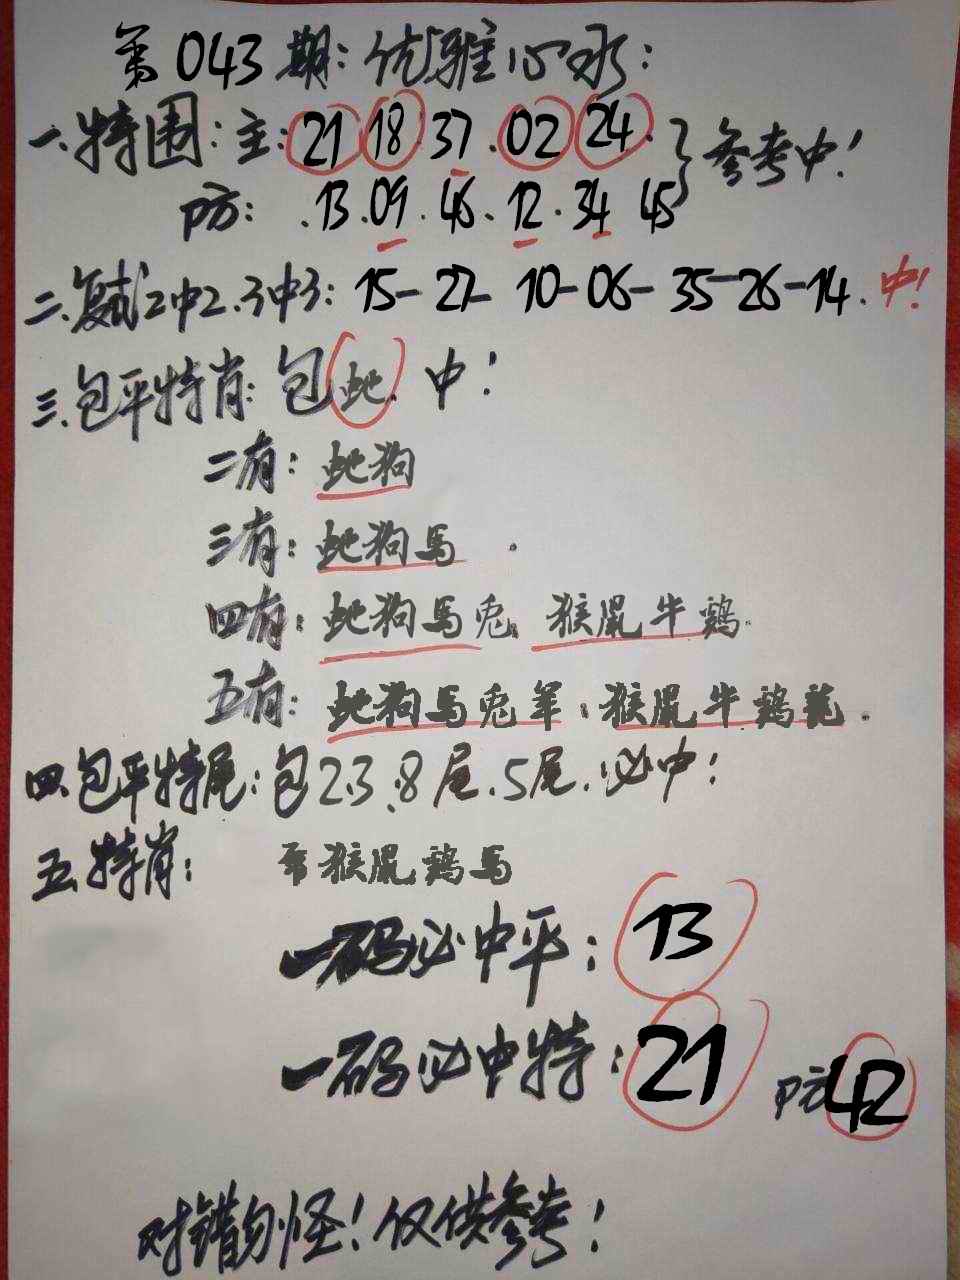 第043期:优雅心水:
一.特围:主:21.18.37.02.24.}参考中!
防:.13.09.46.12.34 45
二.复试2中2.3中3:15-27-10-06-35-26-14.中!
三.包平特肖:包蛇.中!
二有:蛇狗
三有:蛇狗马.
四有:蛇狗馬兔.猴鼠牛鷄.
五有:蛇狗馬兔羊:猴鼠牛鷄龍.
四.包平特尾:包2.3.8尾.5尾.必中!
五.特肖:猴鼠鷄馬
一码必中平:13
一码必中特:21 防42
对错勿怪!仅供参考!